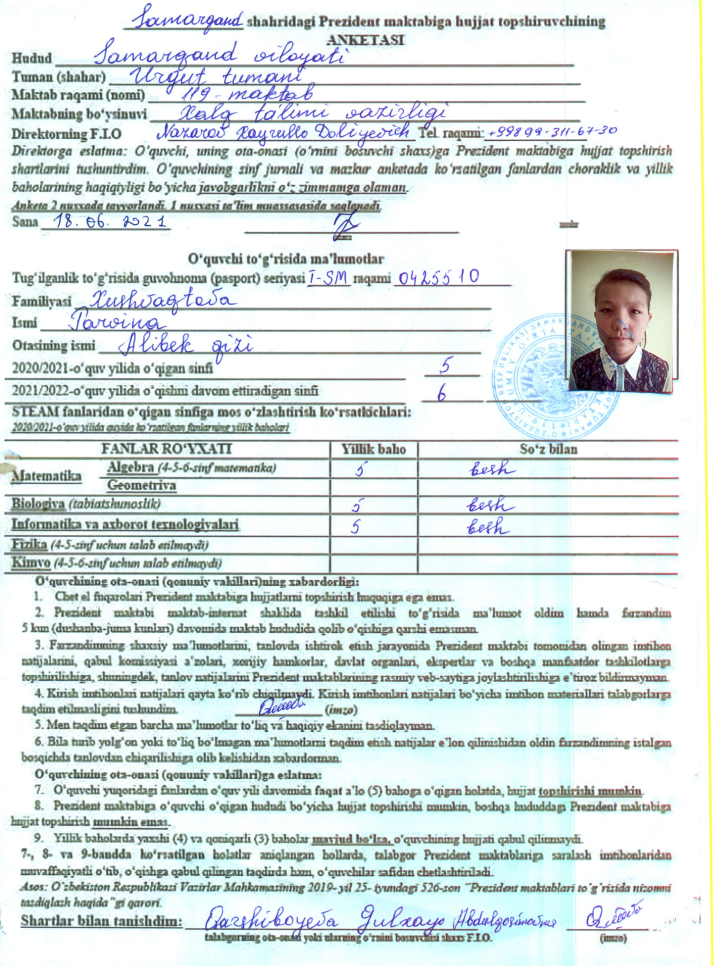 Samarqand shahridagi Prezident maktabiga hujjat topshiruvchining
ANKETASI
Hudud Samarqand viloyati
Tuman (shahar) Urgut tumani
Maktab raqami (nomi) 119-maktab
Maktabning bo‘ysinuvi Xalq ta'limi vazirligi
Direktorning F.I.O Nazarov Xayrullo Doliyevich Tel. raqami: +998 99-311-67-30
Direktorga eslatma: O‘quvchi, uning ota-onasi (o‘rnini bosuvchi shaxs)ga Prezident maktabiga hujjat topshirish
shartlarini tushuntirdim. O‘quvchining sinf jurnali va mazkur anketada ko‘rsatilgan fanlardan choraklik va yillik
baholarining haqiqiyligi bo‘yicha javobgarlikni o‘z zimmamga olaman.
Anketa 2 nusxada tayyorlandi. 1 nusxasi ta’lim muassasasida saqlanadi.
Sana 18.06.2021
O‘quvchi to‘g‘risida ma’lumotlar
Tug‘ilganlik to‘g‘risida guvohnoma (pasport) seriyasi I-SM raqami 0425510
Familiyasi Xushvaqtova
Ismi Parvina
Otasining ismi Alibek qizi
2020/2021-o‘quv yilida o‘qigan sinfi 5
2021/2022-o‘quv yilida o‘qishni davom ettiradigan sinfi 6
STEAM fanlaridan o‘qigan sinfiga mos o‘zlashtirish ko‘rsatkichlari:
2020/2021-o‘quv yilida quyida ko‘rsatilgan fanlarning yillik baholari
FANLAR RO‘YXATI Yillik baho So‘z bilan
Matematika Algebra (4-5-6-sinf matematika) 5 besh
Geometriya
Biologiya (tabiatshunoslik) 5 besh
Informatika va axborot texnologiyalari 5 besh
Fizika (4-5-sinf uchun talab etilmaydi)
Kimyo (4-5-6-sinf uchun talab etilmaydi)
O‘quvchining ota-onasi (qonuniy vakillari)ning xabardorligi:
1. Chet el fuqarolari Prezident maktabiga hujjatlarni topshirish huquqiga ega emas.
2. Prezident maktabi maktab-internat shaklida tashkil etilishi to‘g‘risida ma’lumot oldim hamda farzandim
5 kun (dushanba-juma kunlari) davomida maktab hududida qolib o‘qishiga qarshi emasman.
3. Farzandimning shaxsiy ma’lumotlarini, tanlovda ishtirok etish jarayonida Prezident maktabi tomonidan olingan imtihon
natijalarini, qabul komissiyasi a’zolari, xorijiy hamkorlar, davlat organlari, ekspertlar va boshqa manfaatdor tashkilotlarga
topshirilishiga, shuningdek, tanlov natijalarini Prezident maktablarining rasmiy veb-saytiga joylashtirilishiga e’tiroz bildirmayman.
4. Kirish imtihonlari natijalari qayta ko‘rib chiqilmaydi. Kirish imtihonlari natijalari bo‘yicha imtihon materiallari talabgorlarga
taqdim etilmasligini tushundim. (imzo)
5. Men taqdim etgan barcha ma’lumotlar to‘liq va haqiqiy ekanini tasdiqlayman.
6. Bila turib yolg‘on yoki to‘liq bo‘lmagan ma’lumotlarni taqdim etish natijalar e’lon qilinishidan oldin farzandimning istalgan
bosqichda tanlovdan chiqarilishiga olib kelishidan xabardorman.
O‘quvchining ota-onasi (qonuniy vakillari)ga eslatma:
7. O‘quvchi yuqoridagi fanlardan o‘quv yili davomida faqat a’lo (5) bahoga o‘qigan holatda, hujjat topshirishi mumkin.
8. Prezident maktabiga o‘quvchi o‘qigan hududi bo‘yicha hujjat topshirishi mumkin, boshqa hududdagi Prezident maktabiga
hujjat topshirish mumkin emas.
9. Yillik baholarda yaxshi (4) va qoniqarli (3) baholar mavjud bo‘lsa, o‘quvchining hujjati qabul qilinmaydi.
7-, 8- va 9-bandda ko‘rsatilgan holatlar aniqlangan hollarda, talabgor Prezident maktablariga saralash imtihonlaridan
muvaffaqiyatli o‘tib, o‘qishga qabul qilingan taqdirda ham, o‘quvchilar safidan chetlashtiriladi.
Asos: O‘zbekiston Respublikasi Vazirlar Mahkamasining 2019-yil 25-iyundagi 526-son “Prezident maktablari to‘g‘risida nizomni
tasdiqlash haqida”gi qarori.
Shartlar bilan tanishdim: Qarshiboyeva Gulxayo Abdulqosimovna
talabgorning ota-onasi yoki ularning o‘rnini bosuvchi shaxs F.I.O. (imzo)